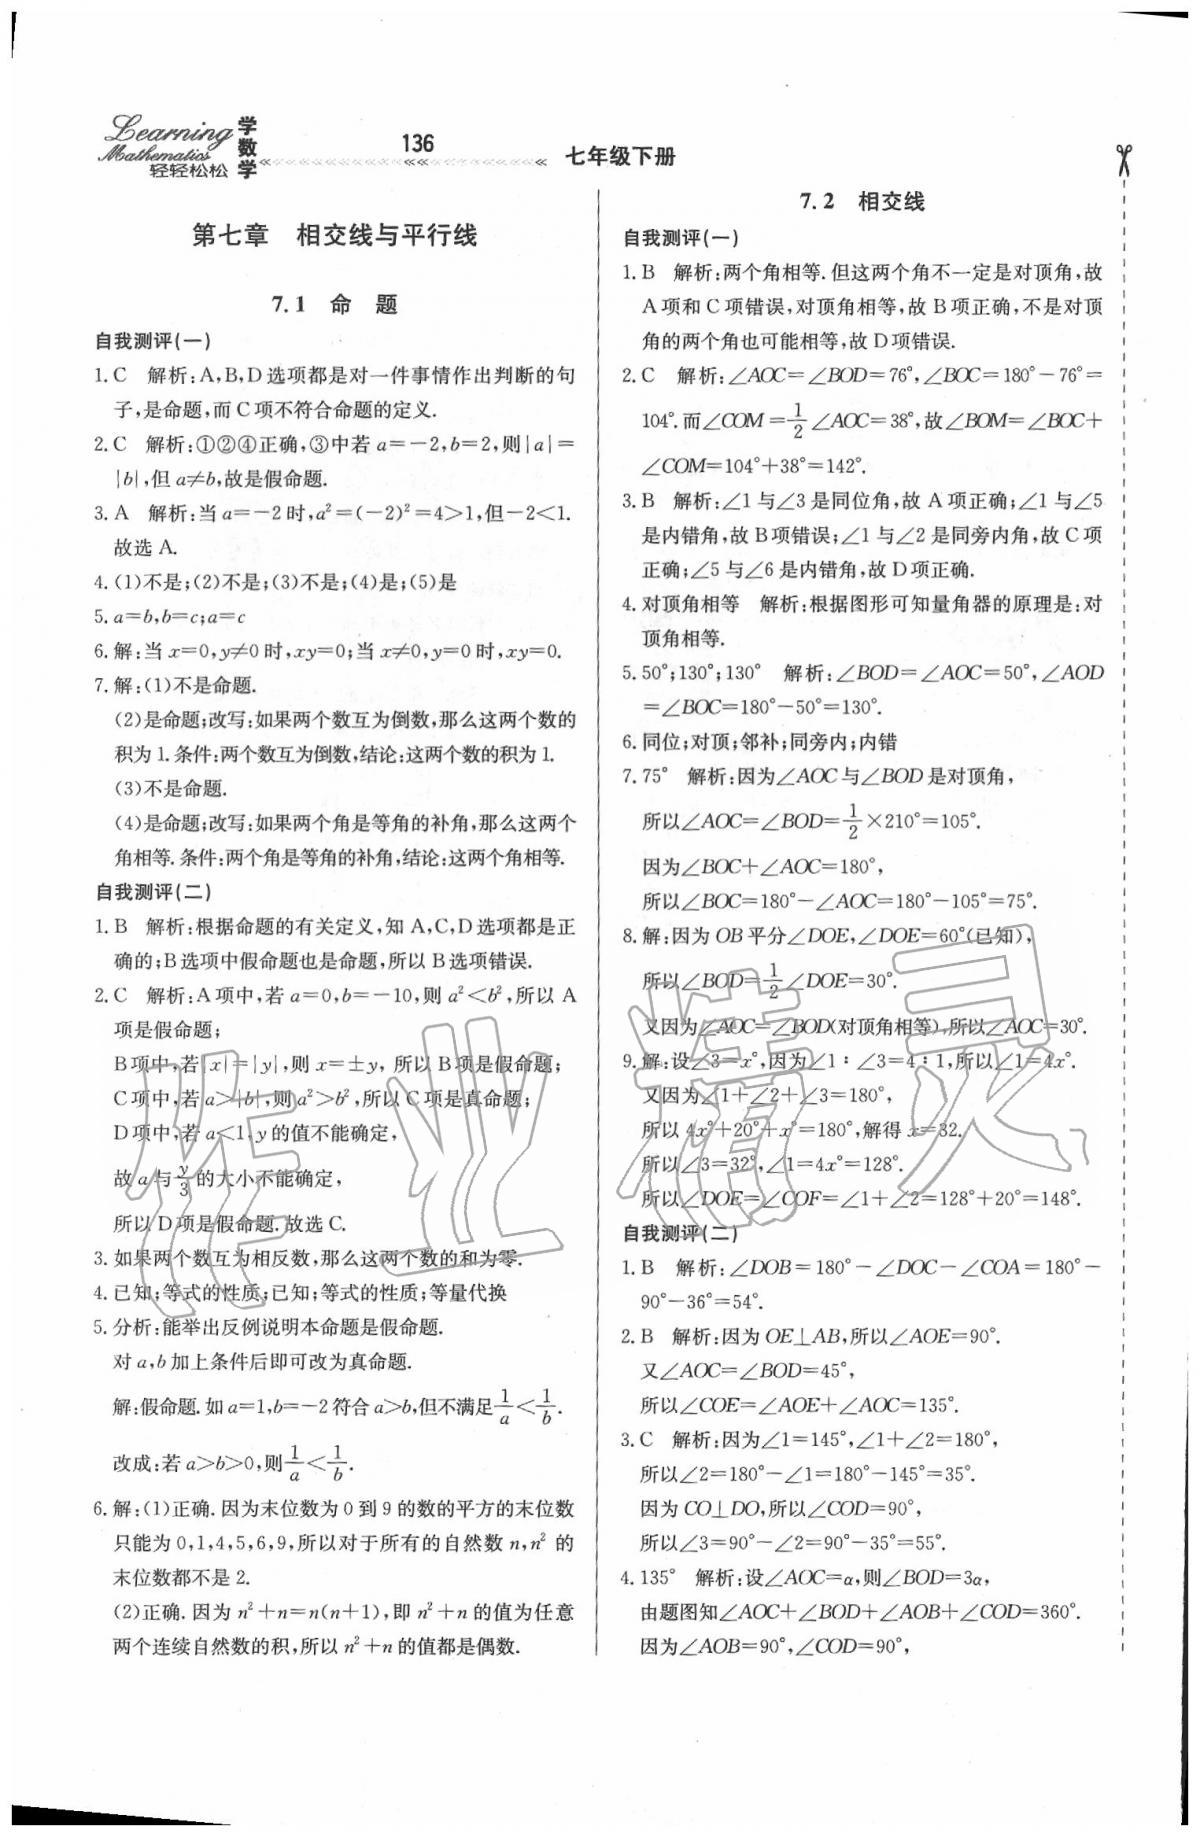 Learning
Mathematics
轻轻松松
学数学
136
七年级下册
第七章 相交线与平行线
7.1 命 题
自我测评(一)
1.C 解析:A,B,D选项都是对一件事情作出判断的句
子,是命题,而C项不符合命题的定义.
2.C 解析:①②④正确,③中若a=-2,b=2,则|a|=
|b|,但a≠b,故是假命题.
3.A 解析:当a=-2时,a²=(-2)²=4>1,但-2<1.
故选A.
4.(1)不是;(2)不是;(3)不是;(4)是;(5)是
5.a=b,b=c;a=c
6.解:当x=0,y≠0时,xy=0;当x≠0,y=0时,xy=0.
7.解:(1)不是命题.
(2)是命题;改写:如果两个数互为倒数,那么这两个数的
积为1.条件:两个数互为倒数,结论:这两个数的积为1.
(3)不是命题.
(4)是命题;改写:如果两个角是等角的补角,那么这两个
角相等.条件:两个角是等角的补角,结论:这两个角相等.
自我测评(二)
1.B 解析:根据命题的有关定义,知A,C,D选项都是正
确的;B选项中假命题也是命题,所以B选项错误.
2.C 解析:A项中,若a=0,b=-10,则a²<b²,所以A
项是假命题;
B项中,若|x|=|y|,则x=±y,所以B项是假命题;
C项中,若a>|b|,则a²>b²,所以C项是真命题;
D项中,若a<1,y的值不能确定,
故a与y/3的大小不能确定,
所以D项是假命题.故选C.
3.如果两个数互为相反数,那么这两个数的和为零.
4.已知;等式的性质;已知;等式的性质;等量代换
5.分析:能举出反例说明本命题是假命题.
对a,b加上条件后即可改为真命题.
解:假命题.如a=1,b=-2符合a>b,但不满足1/a<1/b.
改成:若a>b>0,则1/a<1/b.
6.解:(1)正确.因为末位数为0到9的数的平方的末位数
只能为0,1,4,5,6,9,所以对于所有的自然数n,n²的
末位数都不是2.
(2)正确.因为n²+n=n(n+1),即n²+n的值为任意
两个连续自然数的积,所以n²+n的值都是偶数.
7.2 相交线
自我测评(一)
1.B 解析:两个角相等.但这两个角不一定是对顶角,故
A项和C项错误,对顶角相等,故B项正确,不是对顶
角的两个角也可能相等,故D项错误.
2.C 解析:∠AOC=∠BOD=76°,∠BOC=180°-76°=
104°.而∠COM=1/2∠AOC=38°,故∠BOM=∠BOC+
∠COM=104°+38°=142°.
3.B 解析:∠1与∠3是同位角,故A项正确;∠1与∠5
是内错角,故B项错误;∠1与∠2是同旁内角,故C项
正确;∠5与∠6是内错角,故D项正确.
4.对顶角相等 解析:根据图形可知量角器的原理是:对
顶角相等.
5.50°;130°;130° 解析:∠BOD=∠AOC=50°,∠AOD
=∠BOC=180°-50°=130°.
6.同位;对顶;邻补;同旁内;内错
7.75° 解析:因为∠AOC与∠BOD是对顶角,
所以∠AOC=∠BOD=1/2×210°=105°.
因为∠BOC+∠AOC=180°,
所以∠BOC=180°-∠AOC=180°-105°=75°.
8.解:因为OB平分∠DOE,∠DOE=60°(已知),
所以∠BOD=1/2∠DOE=30°.
又因为∠AOC=∠BOD(对顶角相等),所以∠AOC=30°.
9.解:设∠3=x°,因为∠1∶∠3=4∶1,所以∠1=4x°.
又因为∠1+∠2+∠3=180°,
所以4x°+20°+x°=180°,解得x=32.
所以∠3=32°,∠1=4x°=128°.
所以∠DOE=∠COF=∠1+∠2=128°+20°=148°.
自我测评(二)
1.B 解析:∠DOB=180°-∠DOC-∠COA=180°-
90°-36°=54°.
2.B 解析:因为OE⊥AB,所以∠AOE=90°.
又∠AOC=∠BOD=45°,
所以∠COE=∠AOE+∠AOC=135°.
3.C 解析:因为∠1=145°,∠1+∠2=180°,
所以∠2=180°-∠1=180°-145°=35°.
因为CO⊥DO,所以∠COD=90°,
所以∠3=90°-∠2=90°-35°=55°.
4.135° 解析:设∠AOC=α,则∠BOD=3α,
由题图知∠AOC+∠BOD+∠AOB+∠COD=360°.
因为∠AOB=90°,∠COD=90°,
作业精灵